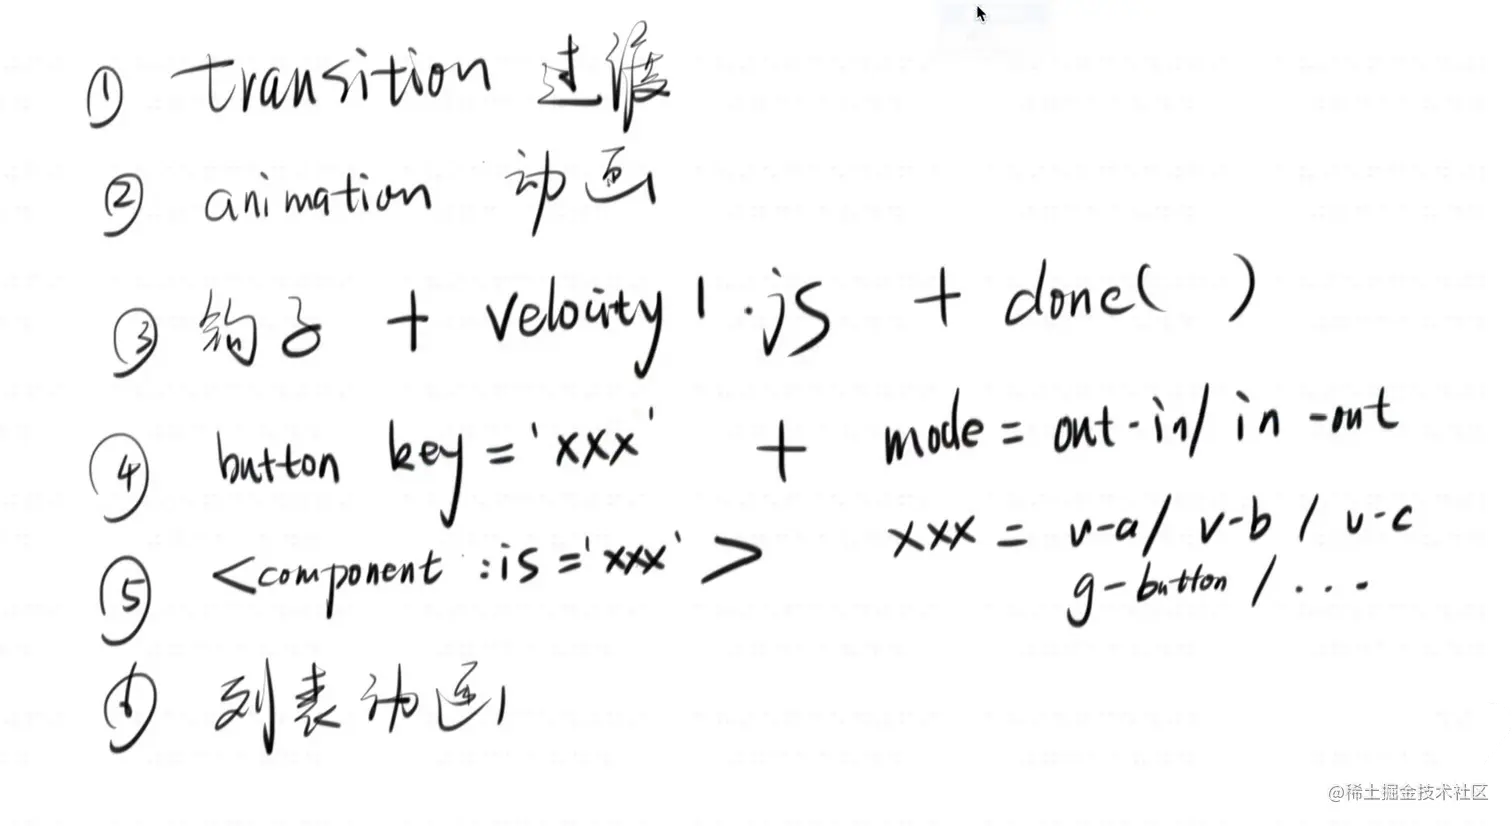 ① transition 过渡
② animation 动画
③ 钩子 + velocity.js + done( )
④ button key='xxx' + mode=out-in/in-out
⑤ <component :is='xxx'> xxx = v-a/ v-b / v-c
g-button / ...
⑥ 列表动画
@稀土掘金技术社区